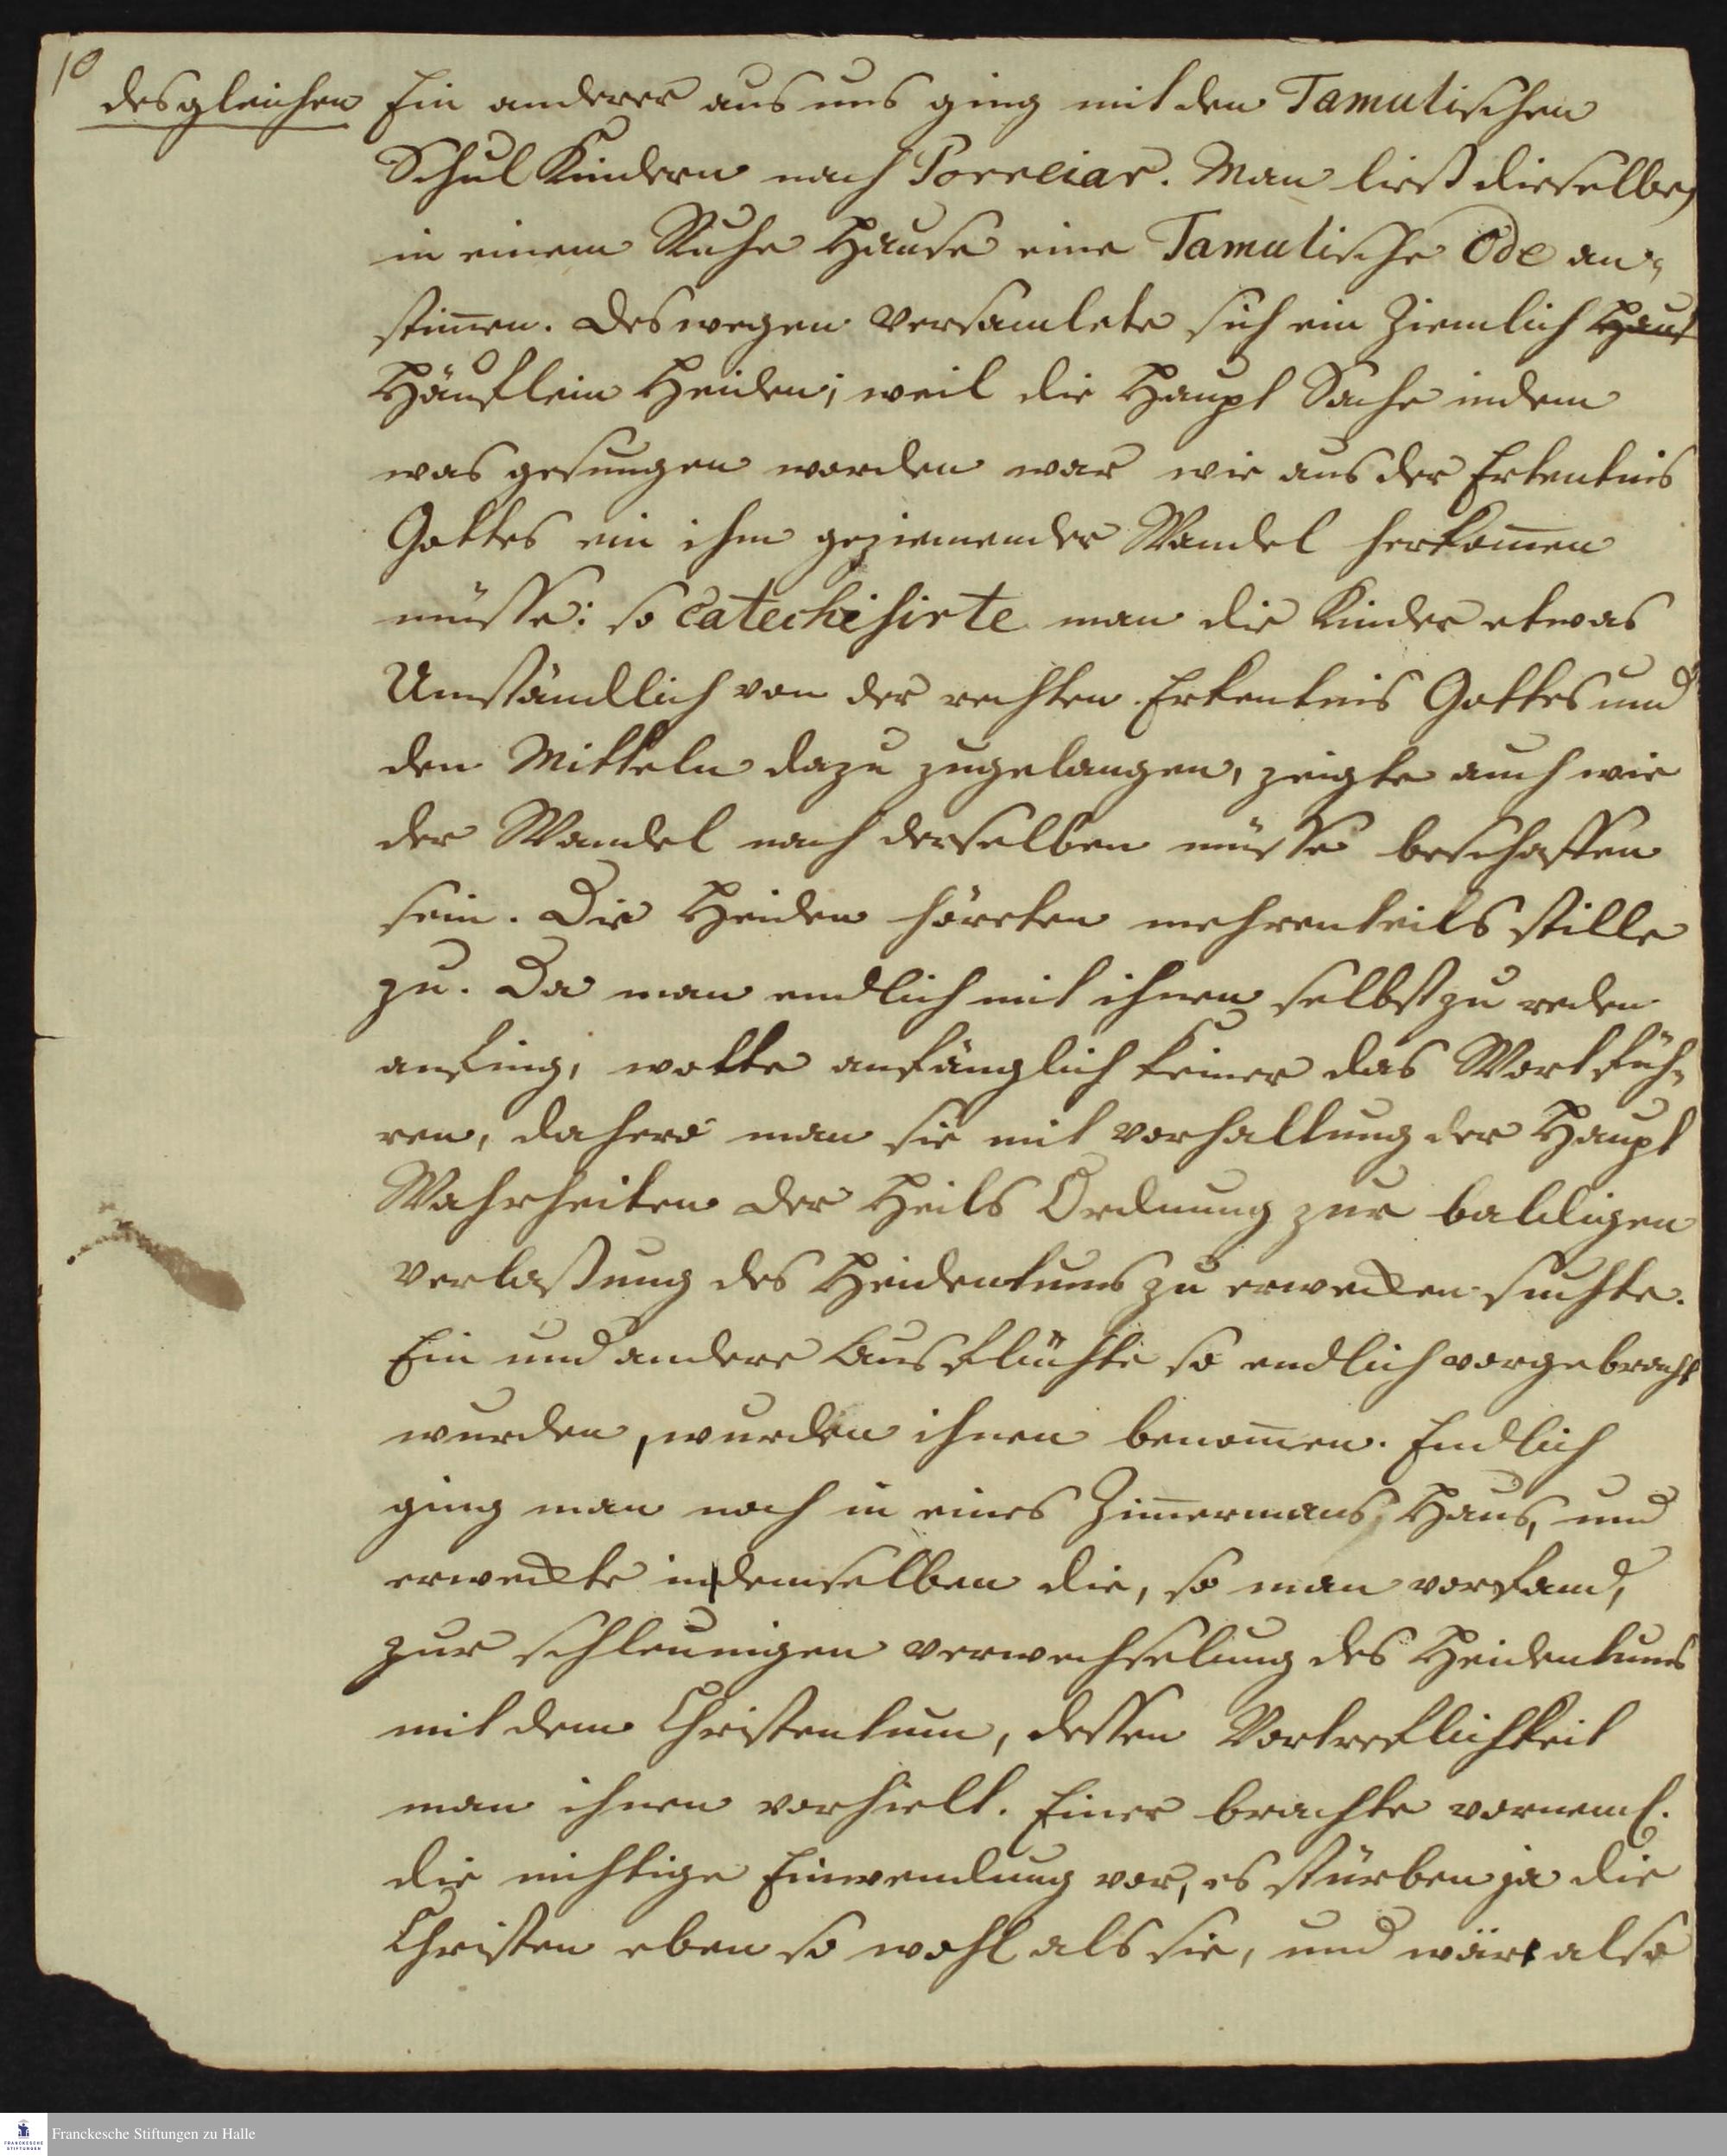 10
desgleichen Ein anderer aus uns ging mit den Tamulischen
Schul Kindern nach Porreiar. Man ließ dieselbe
in einem Ruhe Hause eine Tamulische Ode an-
stim̄en. Deswegen versamlete sich ein Ziemlich Hauf
Häuflein Heiden; weil die Haupt Sache indem
was gesungen worden war wie aus der Erkentnis
Gottes ein ihm geziemender Wandel herkom̄en
müsse: so catechisirte man die Kinder etwas
Umständlich von der rechten Erkentnis Gottes und
den Mitteln dazu zugelangen, zeigte auch wie
der Wandel nach derselben müsse beschaffen
sein. Die Heiden höreten mehrenteils stille
zu. Da man endlich mit ihnen selbst zu reden
anfing, wolte anfänglich keiner das Wort füh-
ren, dahero man sie mit vorhaltung der Haupt
Wahrheiten der Heils Ordnung zur baldigen
Verlaßung des Heidentums zu erwecken suchte.
Ein und andere Ausflüchte so endlich vorgebracht
wurden, wurden ihnen benom̄en. Endlich
ging man noch in eines Zim̄ermans Haus, und
erweckte in demselben die, so man vorfand,
zur schleunigen Verwechselung des Heidentums
mit dem Christentum, dessen Vortreflichkeit
man ihnen vorhielt. Einer brachte vorneml.
die nichtige Einwendung vor, es stürben ja die
Christen eben so wohl als sie, und wäre also
Franckesche Stiftungen zu Halle